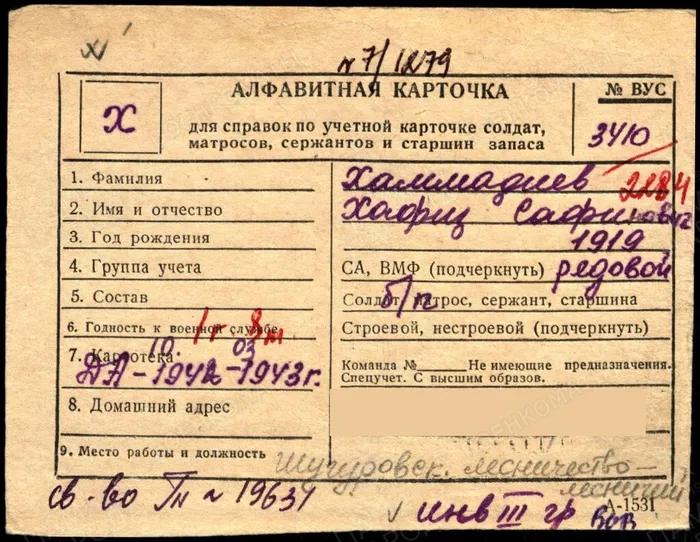 № 7/1279
АЛФАВИТНАЯ КАРТОЧКА
№ ВУС
Х
для справок по учетной карточке солдат,
матросов, сержантов и старшин запаса
3410
2284
1. Фамилия Хаммадиев
2. Имя и отчество Хафиз Сафинович
3. Год рождения 1919
4. Группа учета СА, ВМФ (подчеркнуть) редовой
5. Состав Солдат, матрос, сержант, старшина б/п
6. Годность к военной службе Строевой, нестроевой (подчеркнуть)
1г 8м
7. Картотека Команда № Не имеющие предназначения.
Спецучет. С высшим образов.
10. 03
ДА-1942-1943г.
8. Домашний адрес
9. Место работы и должность Шугуровск. лесничество-
лесничий
св-во № 19631
А-1531
инв III гр ВОВ